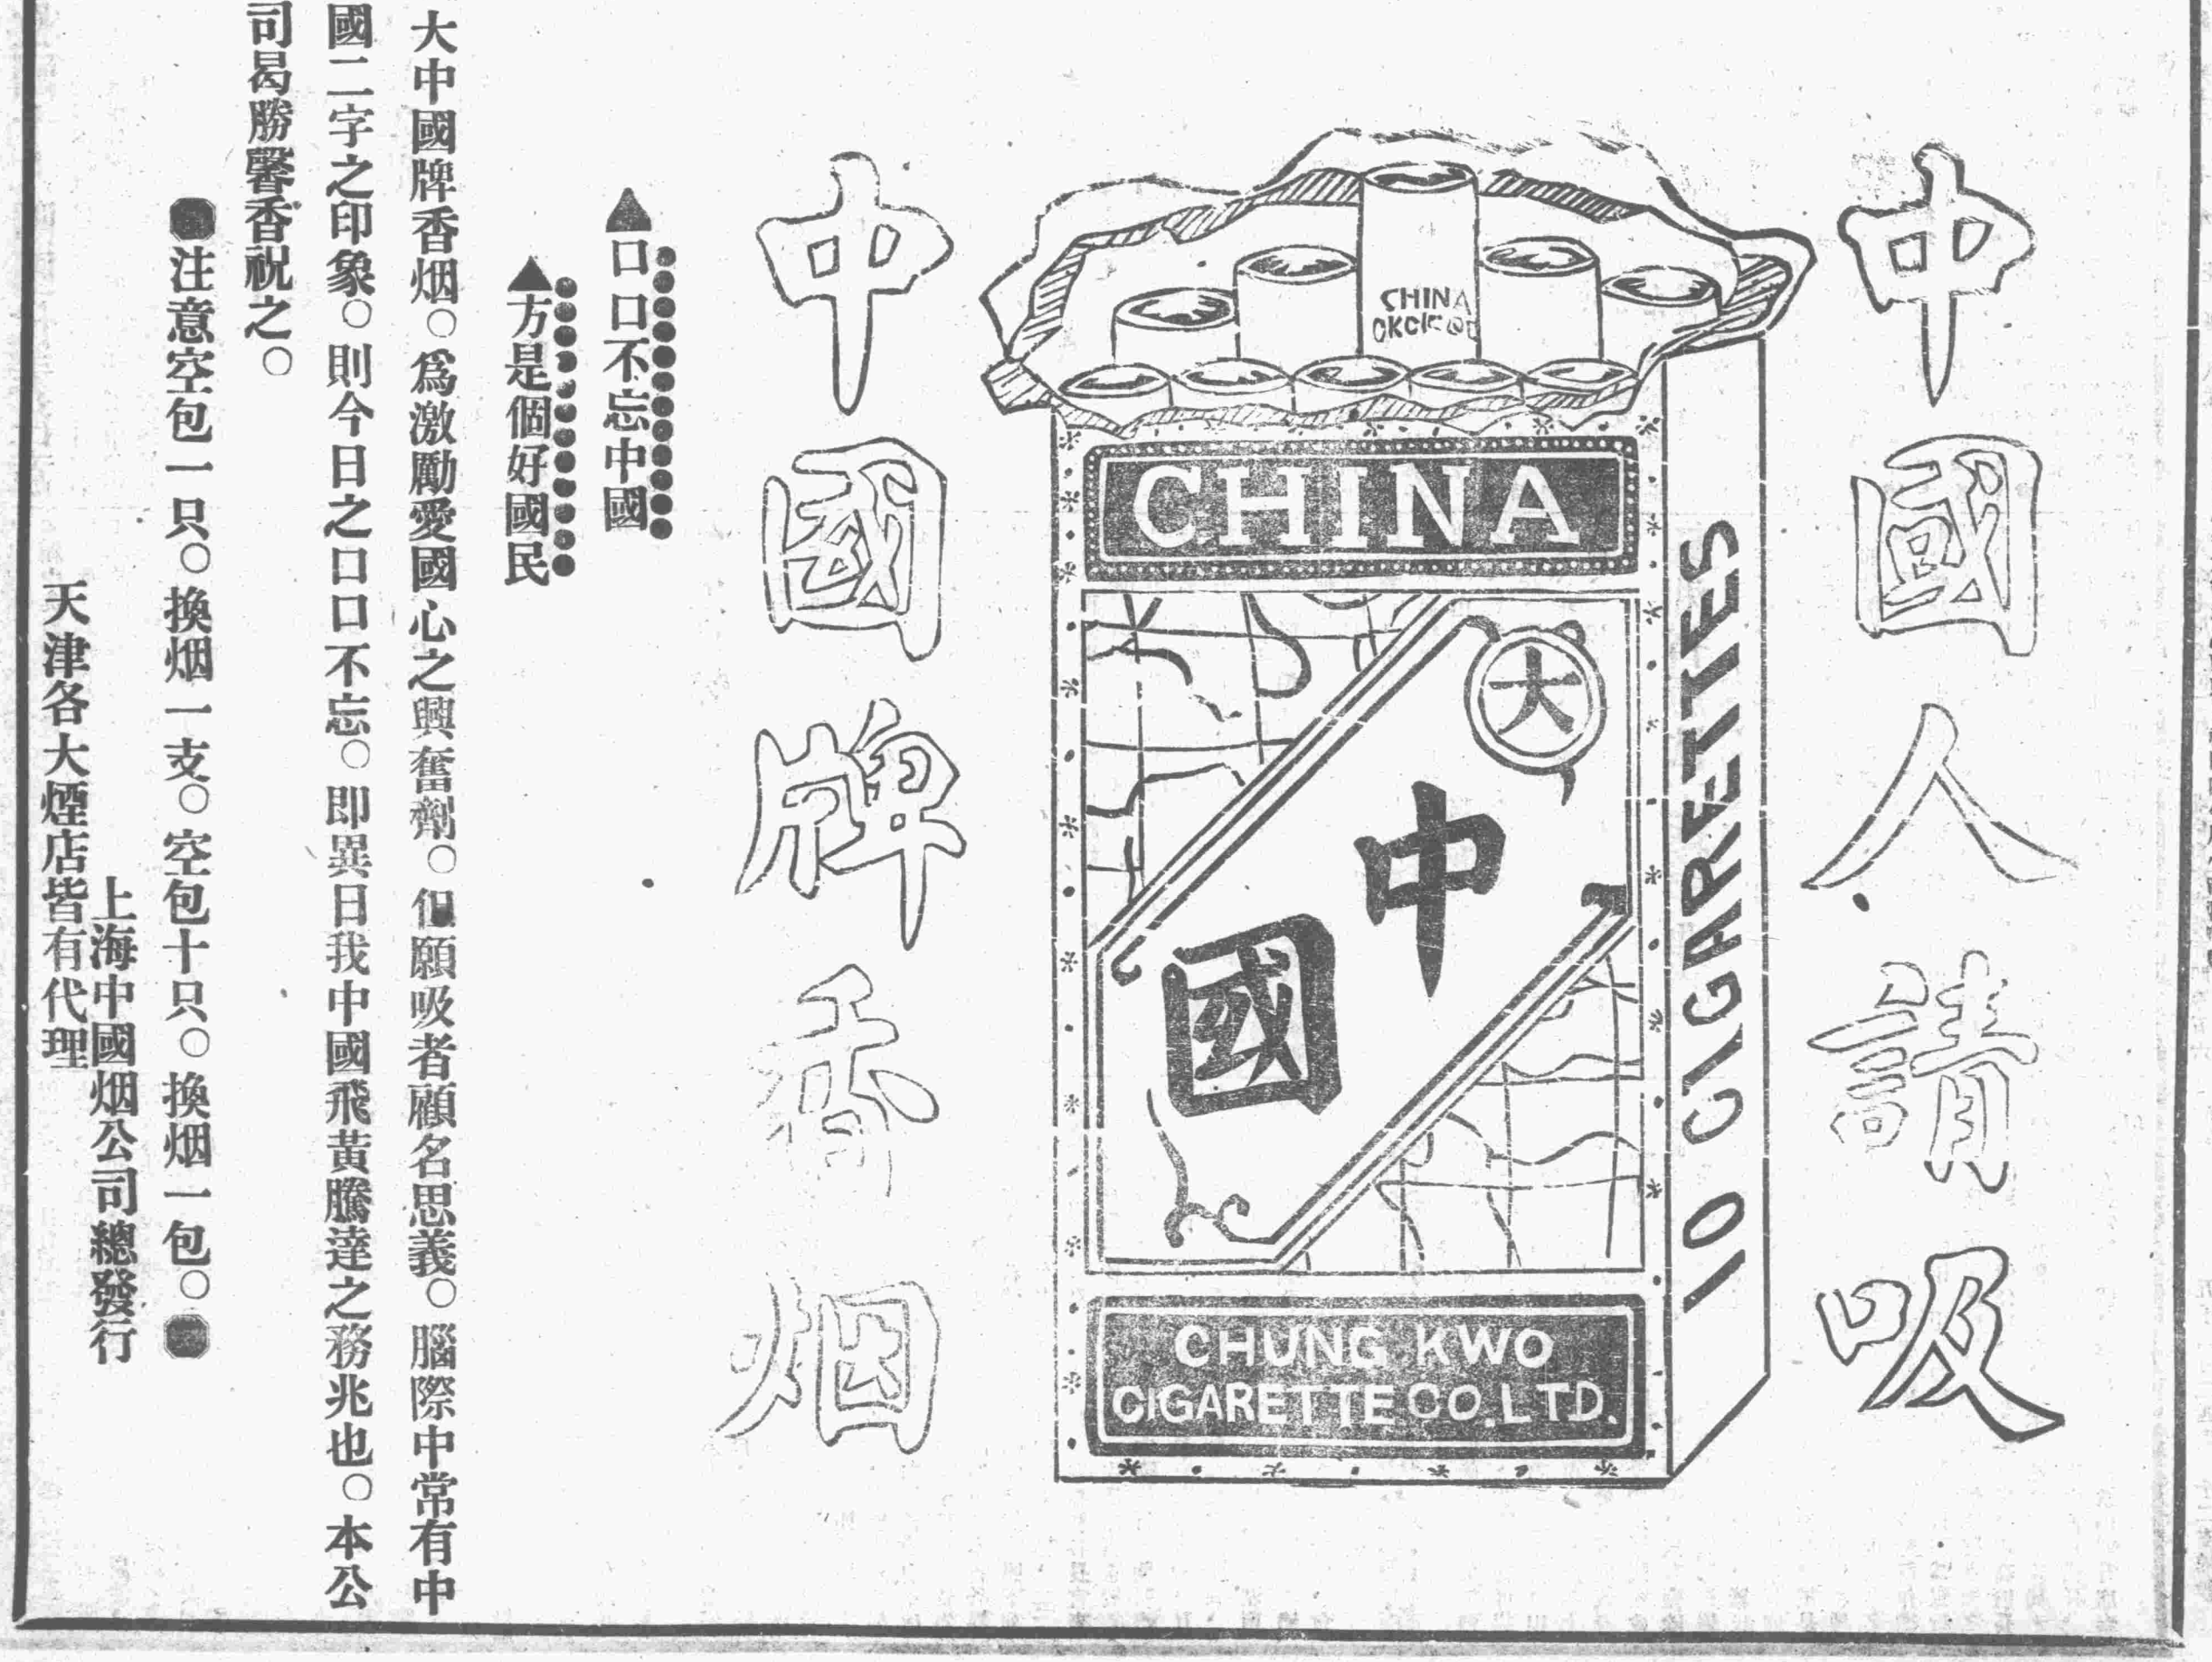 中國人請吸
CHINA
CHINA
大
中
國
CHUNG KWO
CIGARETTE CO. LTD.
10 CIGARETTES
中國牌香烟
▲口口不忘中國
▲方是個好國民
大中國牌香烟。爲激勵愛國心之興奮劑。但願吸者顧名思義。腦際中常有中
國二字之印象。則今日之口口不忘。即異日我中國飛黃騰達之務兆也。本公
司曷勝馨香祝之。
●注意空包一只。換烟一支。空包十只。換烟一包。●
上海中國烟公司總發行
天津各大煙店皆有代理